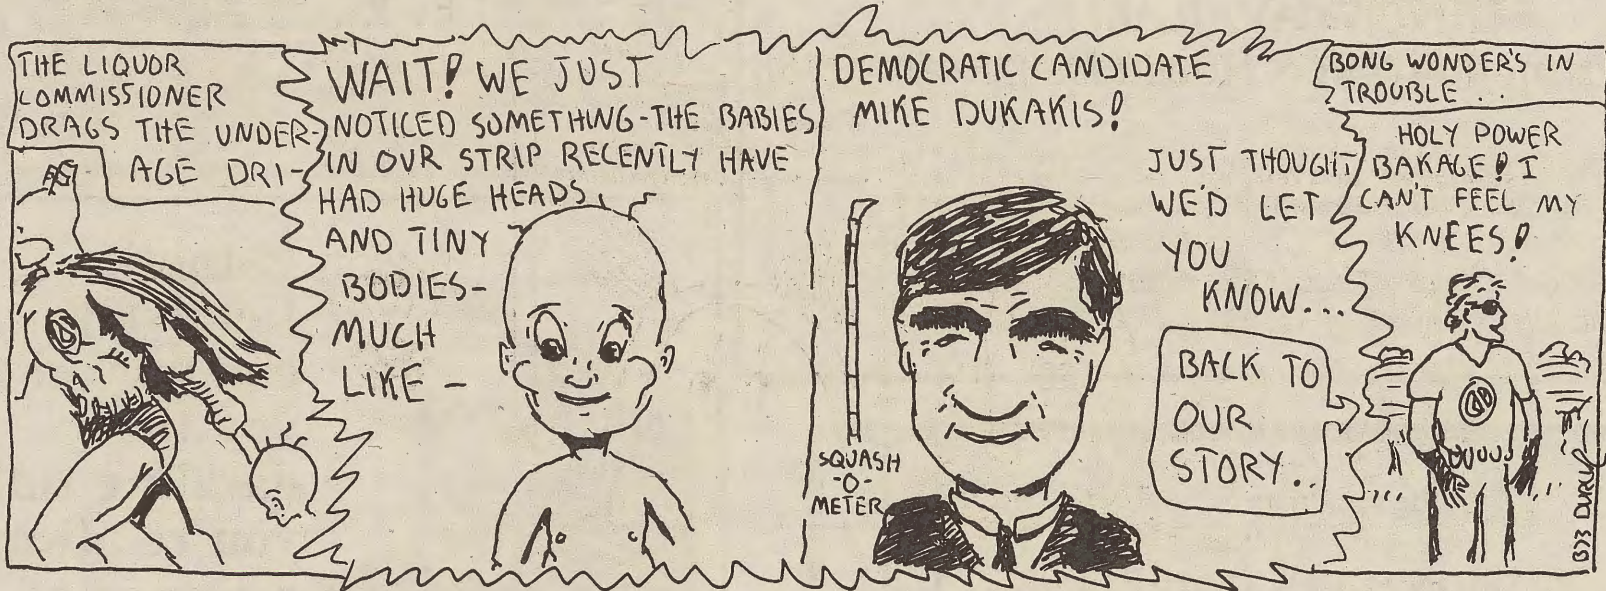 THE LIQUOR
COMMISSIONER
DRAGS THE UNDER-
AGE DRI-
WAIT! WE JUST
NOTICED SOMETHING-THE BABIES
IN OUR STRIP RECENTLY HAVE
HAD HUGE HEADS
AND TINY
BODIES-
MUCH
LIKE -
DEMOCRATIC CANDIDATE
MIKE DUKAKIS!
JUST THOUGHT
WE'D LET
YOU
KNOW...
SQUASH
-O-
METER
BACK TO
OUR
STORY..
BONG WONDER'S IN
TROUBLE...
HOLY POWER
BAKAGE! I
CAN'T FEEL MY
KNEES!